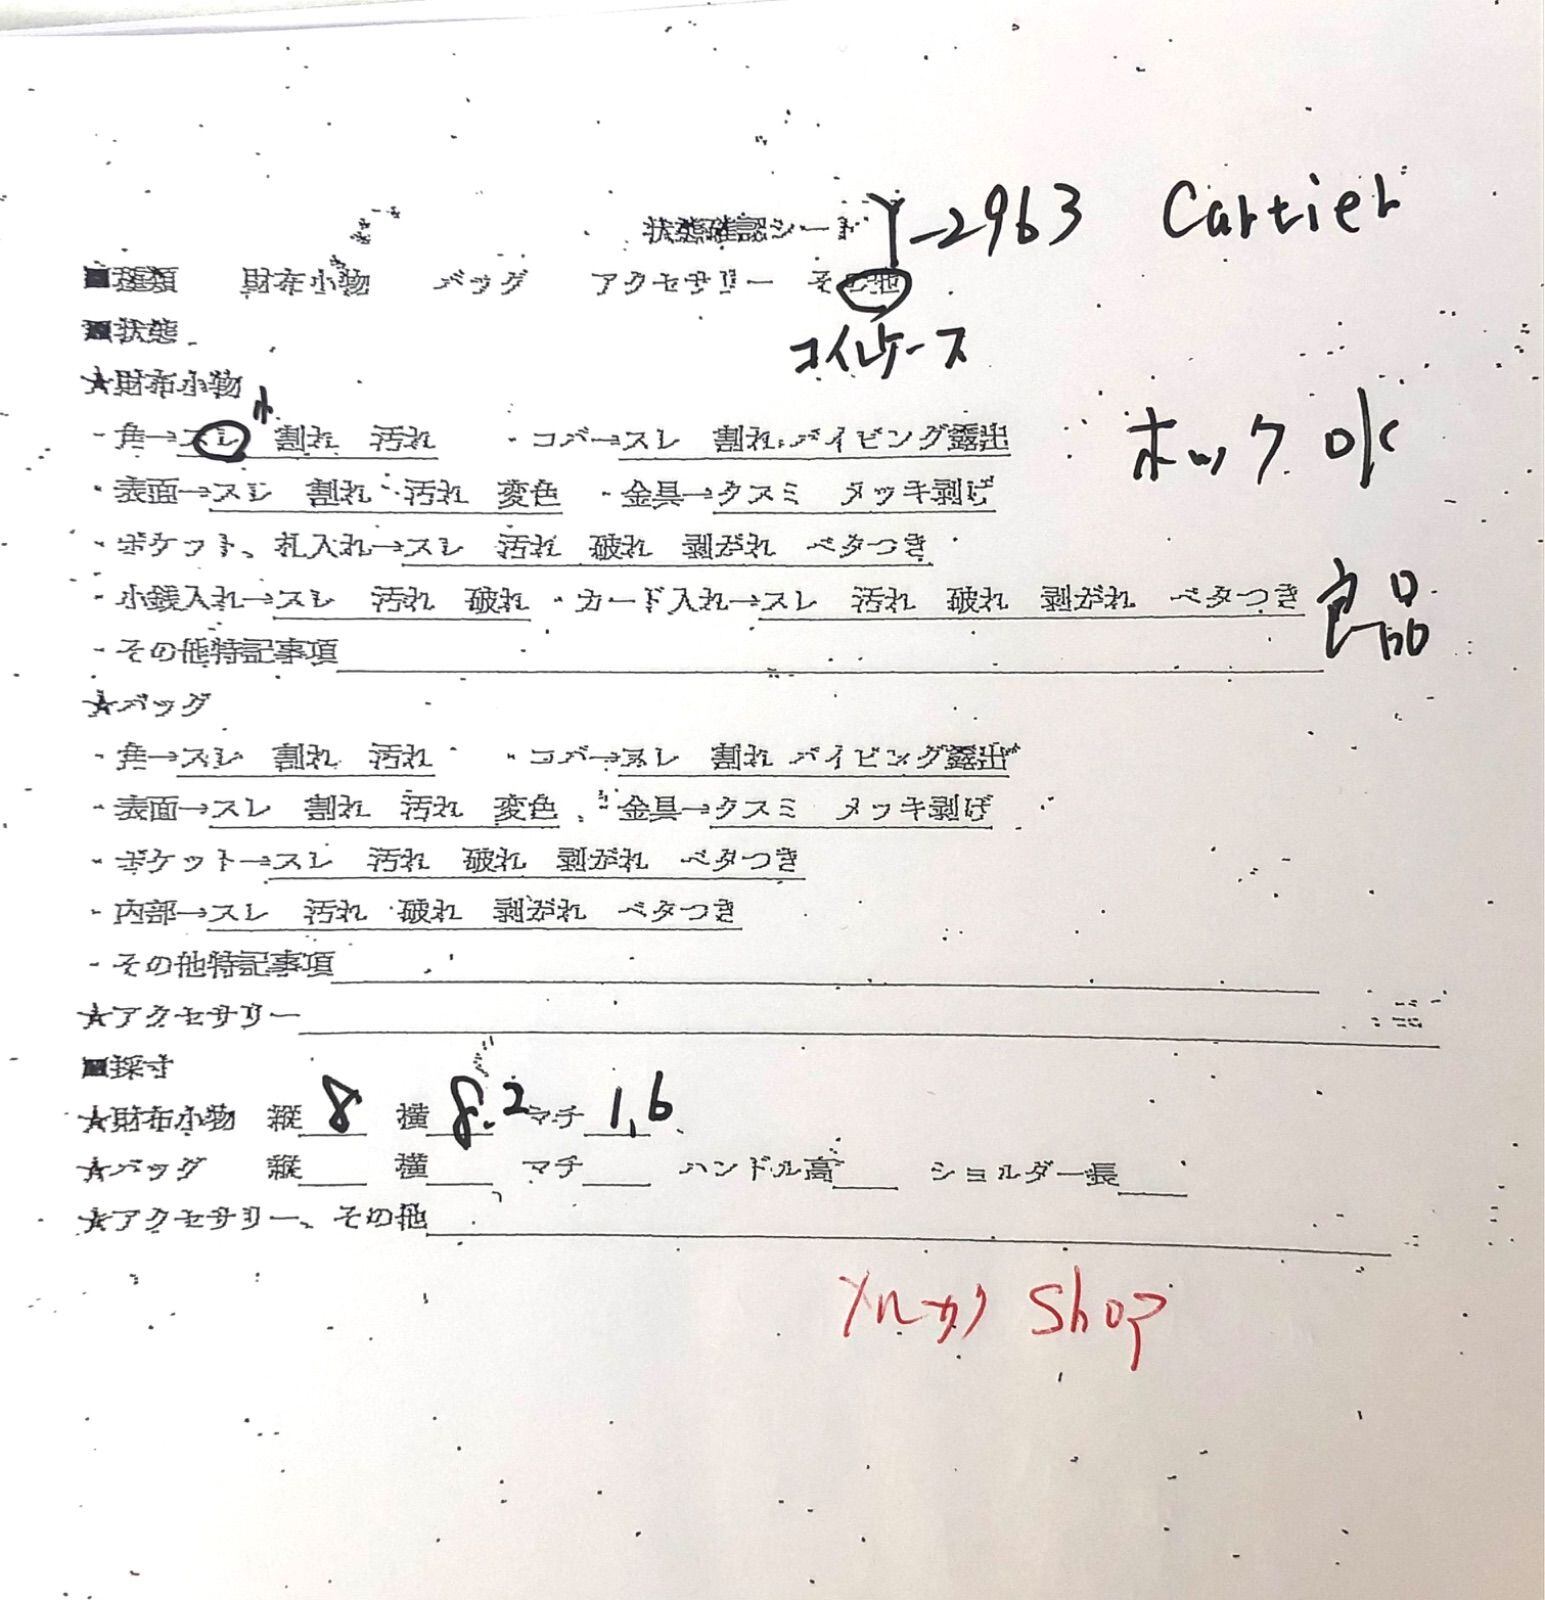 状態確認シート Y-2963 Cartier
■種類 財布小物 バッグ アクセサリー その他
■状態 コインケース
★財布小物
・角→スレ 小 割れ 汚れ ・コバ→スレ 割れ パイピング露出 ホック OK
・表面→スレ 割れ 汚れ 変色 ・金具→クスミ メッキ剥げ
・ポケット、札入れ→スレ 汚れ 破れ 剥がれ ベタつき
・小銭入れ→スレ 汚れ 破れ ・カード入れ→スレ 汚れ 破れ 剥がれ ベタつき 良品
・その他特記事項
★バッグ
・角→スレ 割れ 汚れ ・コバ→スレ 割れ パイピング露出
・表面→スレ 割れ 汚れ 変色 ・金具→クスミ メッキ剥げ
・ポケット→スレ 汚れ 破れ 剥がれ ベタつき
・内部→スレ 汚れ 破れ 剥がれ ベタつき
・その他特記事項
★アクセサリー
■採寸
★財布小物 縦 8 横 8.2 マチ 1,6
★バッグ 縦 横 マチ ハンドル高 ショルダー長
★アクセサリー、その他
メルカリ Shop